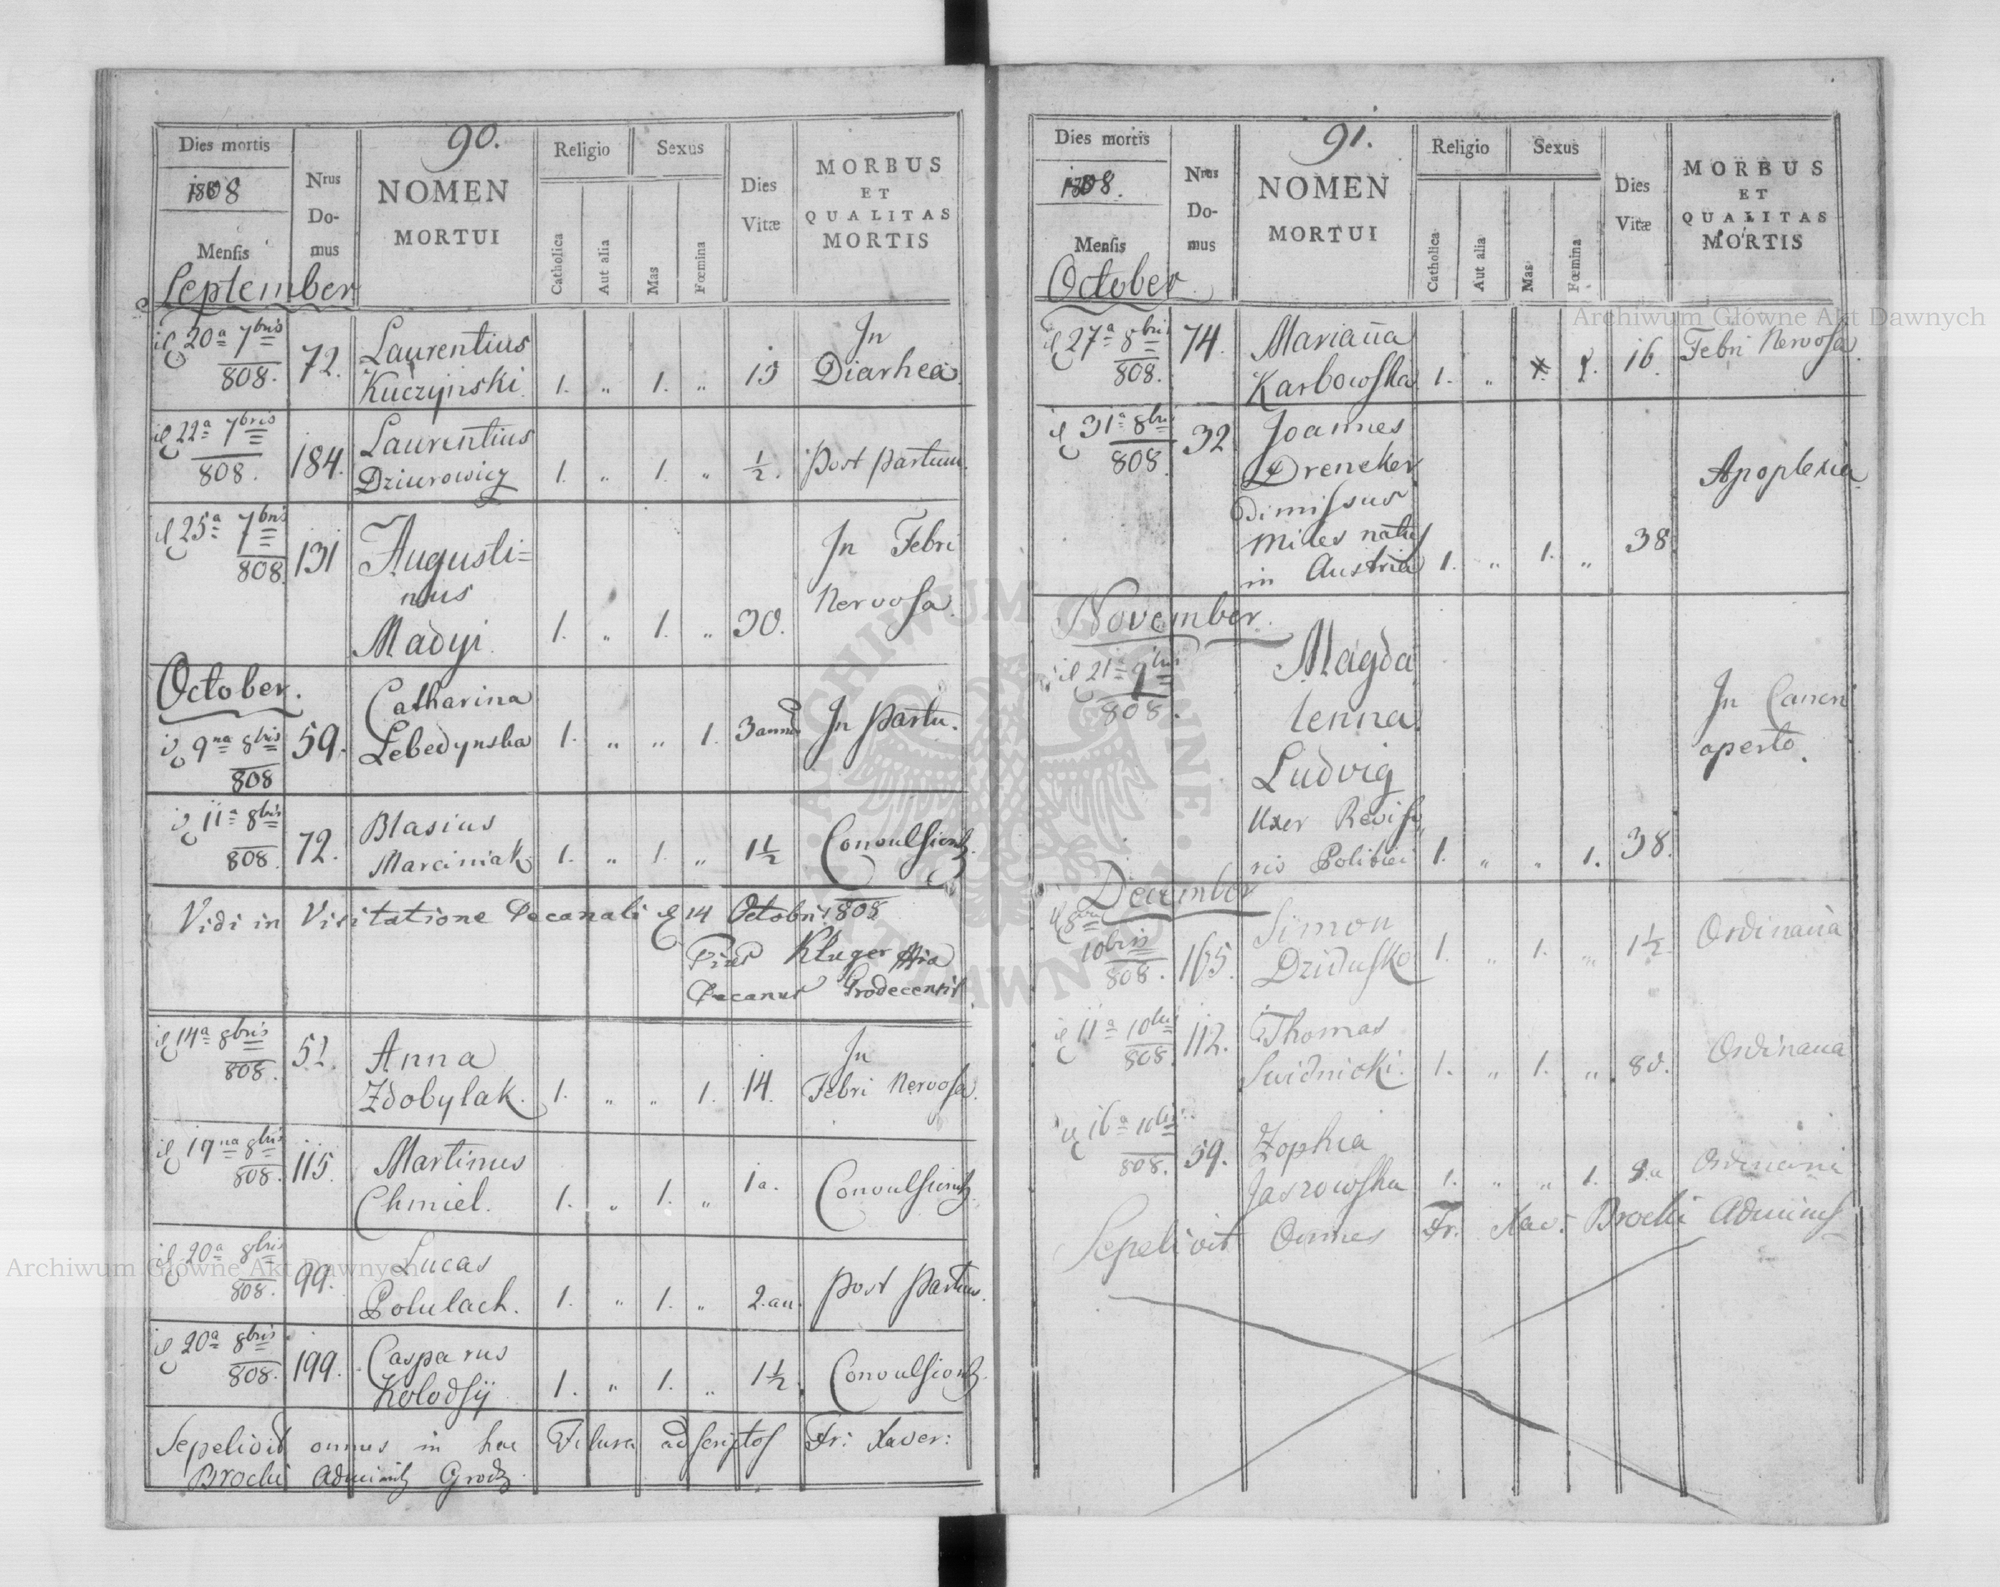 90.
Dies mortis
1808
Mensis
Nrus Domus
NOMEN
MORTUI
Religio
Catholica
Aut alia
Sexus
Mas
Fœmina
Dies Vitæ
MORBUS
ET
QUALITAS
MORTIS
September
20a 7bris 808. 72. Laurentius Kuczynski. 1. „ 1. „ 15 In Diarhea.
22a 7bris 808. 184. Laurentius Dziurowicz 1. „ 1. „ ½. post partum.
25a 7bris 808. 131 Augusti=nus Madyi. 1. „ 1. „ 30. In Febri Nervosa.
October.
9na 8bris 808 59. Catharina Lebedynska 1. „ „ 1. 3 In partu.
11a 8bris 808. 72. Blasius Marciniak 1. „ 1. „ 1½
Vidi in Visitatione Decanali 14 Octobris 808
Kluger
Decanus Grodecensis
14a 8bris 808. 52. Anna Zdobylak. 1. „ „ 1. 14. In Febri Nervosa.
8bris 808. 115. Martinus Chmiel. 1. „ 1. „ 1 a.
20a 8bris 808. 99. Lucas Polulach. 1. „ 1. „ 2. an. post partum.
20a 8bris 808. 199. Casparus Kolodsij 1. „ 1. „ 1½.
Sepelivit omnes in hac adscriptos Fr: Xaver:
Brocki
91.
Dies mortis
1808.
Mensis
Nrus Domus
NOMEN
MORTUI
Religio
Catholica
Aut alia
Sexus
Mas
Fœmina
Dies Vitæ
MORBUS
ET
QUALITAS
MORTIS
October
27a 8bris 808. 74. Marianna Karbowska 1. „ 1. 16. Febri Nervosa.
31a 8bris 808. 32. Joannes Dreneker dimissus Miles natus in Austria 1. „ 1. „ 38. Apoplexia.
November.
21a 9bris 808. Magdalenna Ludvig Uxer Reviso ris Politici 1. „ „ 1. 38. In Cancri aperto.
December
10bris 808. 165. Simon Dziduszko 1. „ 1. „ 1½ Ordinaria
11a 10bris 808. 112. Thomas Swidnicki. 1. „ 1. „ 80. Ordinaria
16a 10bris 808. 59. Zophia Jaszowska 1. „ „ 1. 8 a Ordinaria
Sepelivit Omnes Fr. Xav: Brocki
Archiwum Główne Akt Dawnych
Archiwum Główne Akt Dawnych
ARCHIWUM GŁÓWNE AKT DAWNYCH